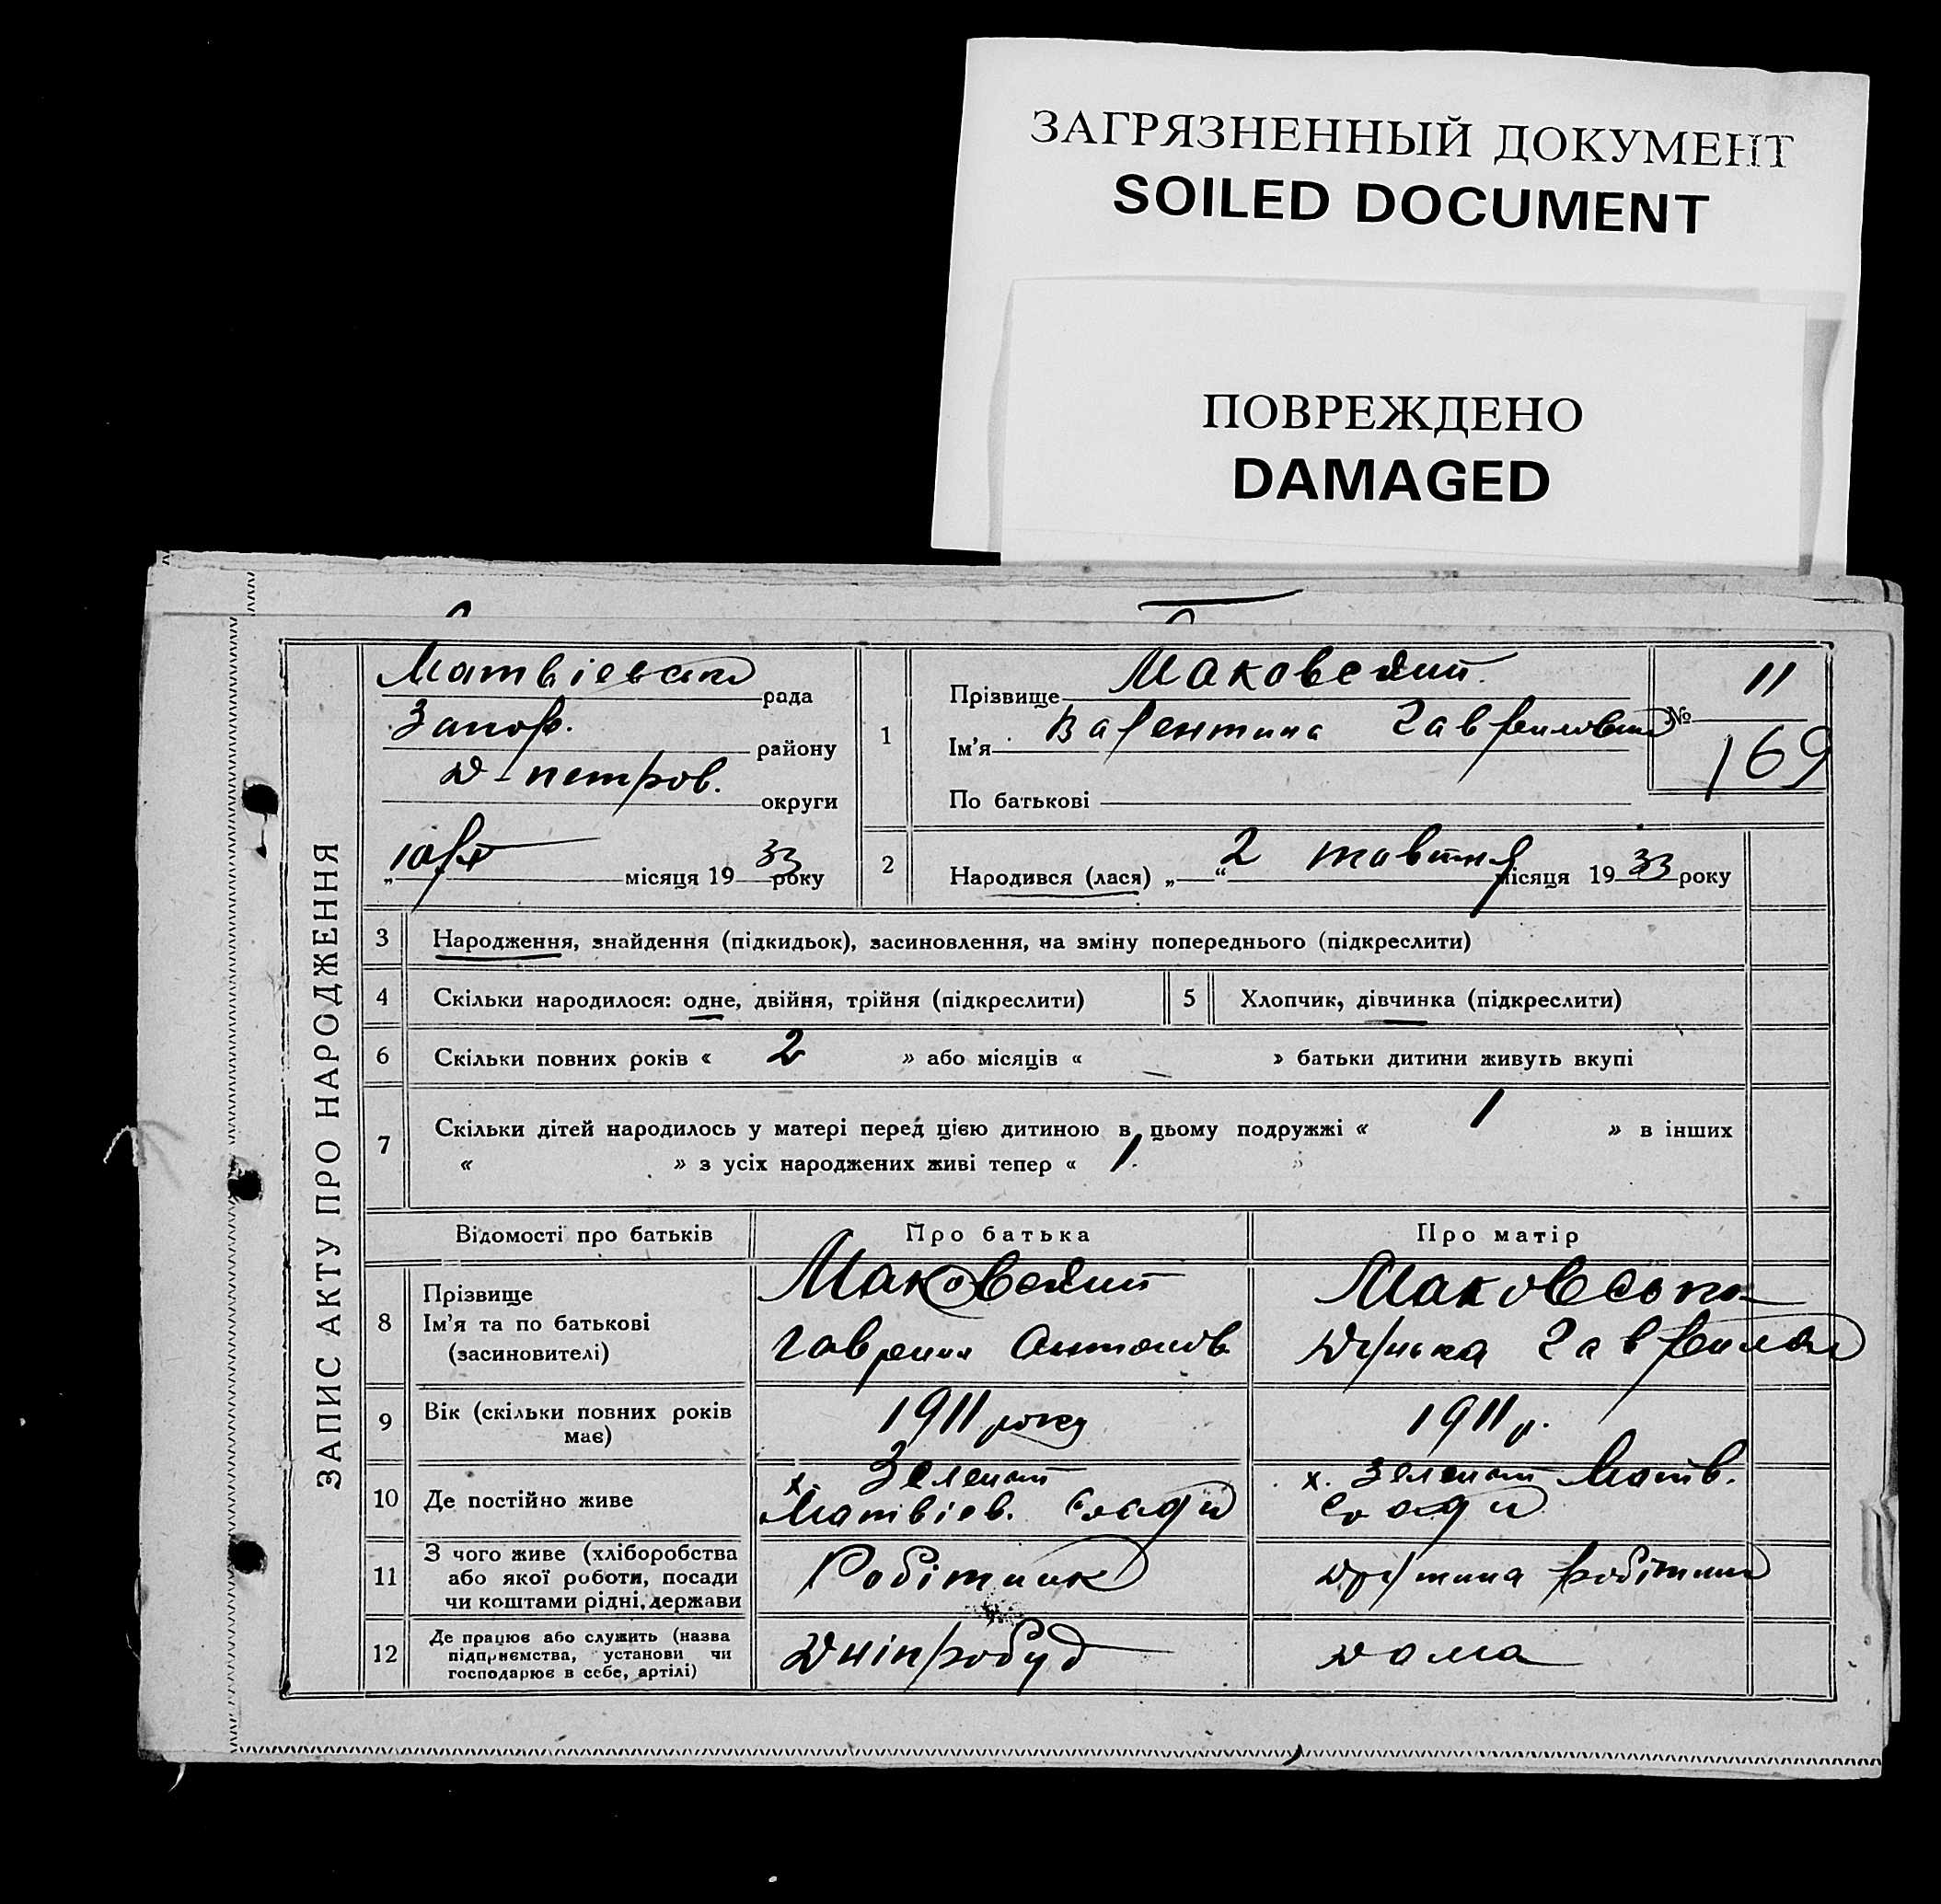 ЗАГРЯЗНЕННЫЙ ДОКУМЕНТ
SOILED DOCUMENT
ПОВРЕЖДЕНО
DAMAGED
ЗАПИС АКТУ ПРО НАРОДЖЕННЯ
рада
Запор. району
Д-петров. округи
місяця 19 33 року
1
Прізвище Маковский
Ім'я Валентина
По батькові
№ 11
169
2
Народився (лася) „ 2 “ жовтня місяця 19 33 року
3 Народження, знайдення (підкидьок), засиновлення, на зміну попереднього (підкреслити)
4 Скільки народилося: одне, двійня, трійня (підкреслити) 5 Хлопчик, дівчинка (підкреслити)
6 Скільки повних років « 2 » або місяців « — » батьки дитини живуть вкупі
7 Скільки дітей народилось у матері перед цією дитиною в цьому подружжі « 1 » в інших
« » з усіх народжених живі тепер « 1 »
Відомості про батьків Про батька Про матір
8 Прізвище
Ім'я та по батькові
(засиновителі)
Маковский
Гаврил Антонов
Маковська
9 Вік (скільки повних років
має)
1911 року
1911 р.
10 Де постійно живе
х. Зелений
Матвіев. Сради
х. Зелений Матв.
Сради
11 З чого живе (хліборобства
або якої роботи, посади
чи коштами рідні, держави
Робітник
Дружина робітника
12 Де працює або служить (назва
підприємства, установи чи
господарює в себе, артілі)
Дніпробуд
Дома